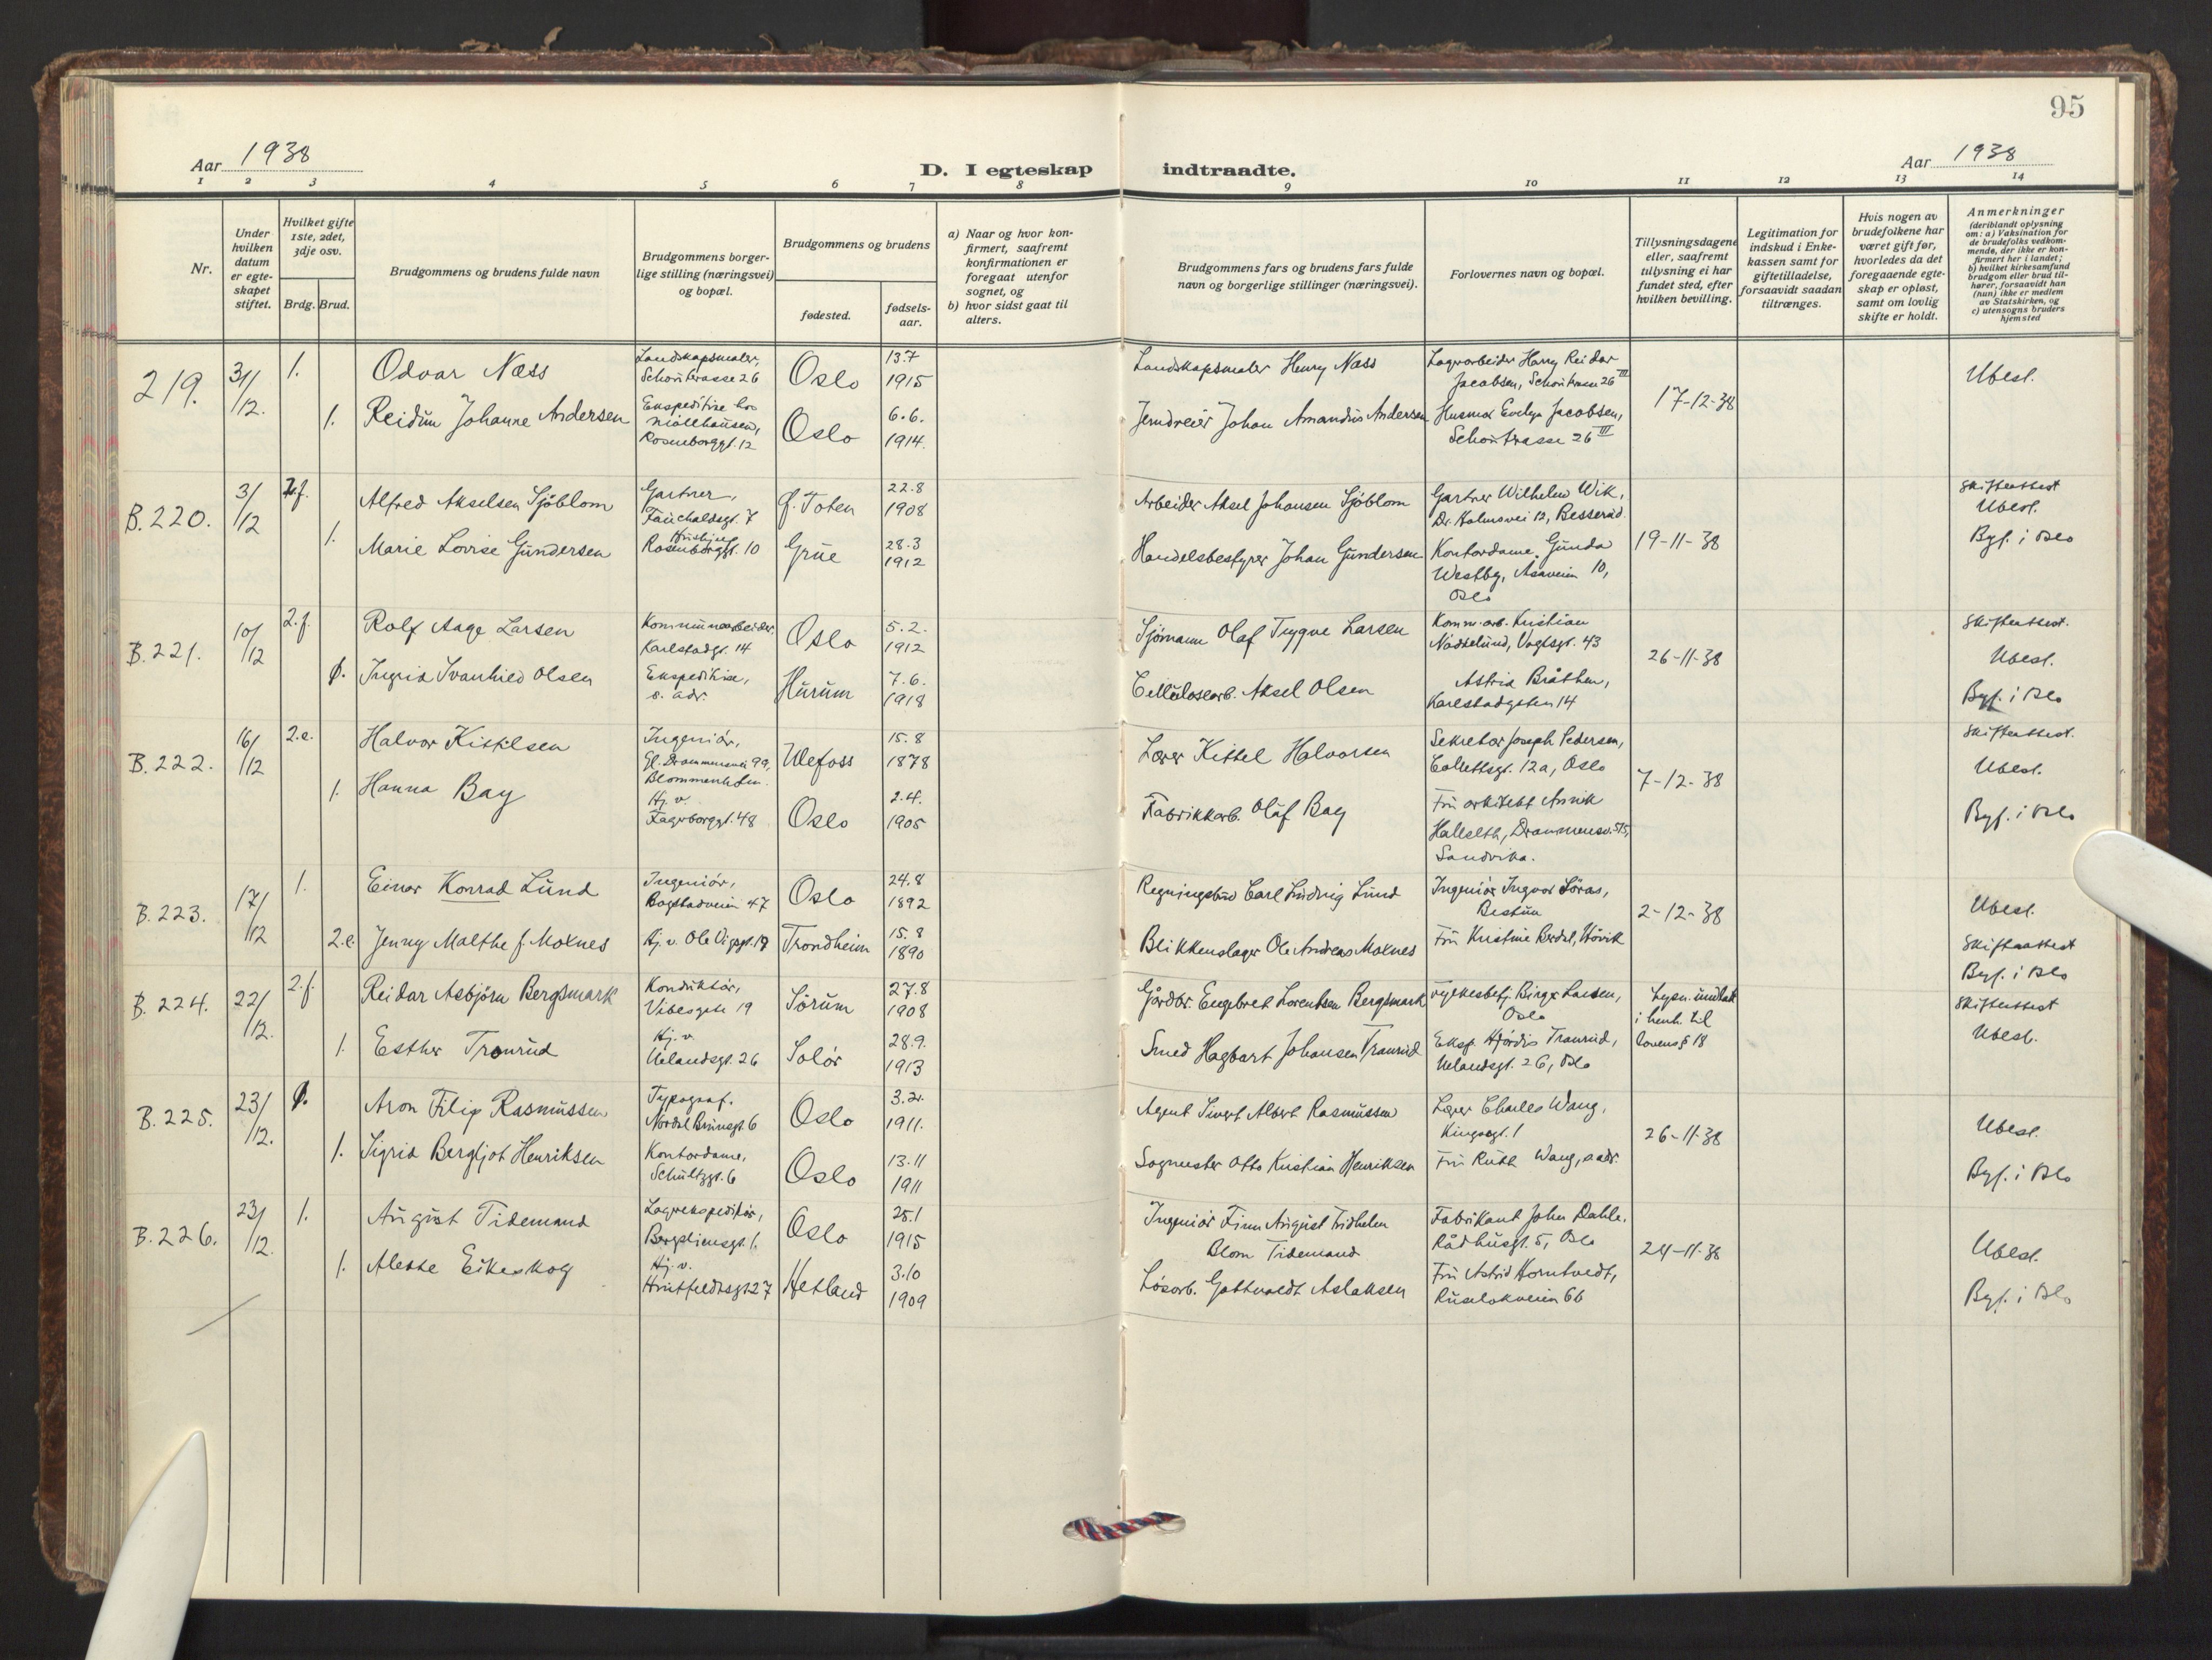 95
Aar 1938
D. I egteskap indtraadte.
Aar 1938
1 2 3 4 5 6 7 8 9 10 11 12 13 14
Nr.
Under hvilken datum er egte-skapet stiftet.
Hvilket gifte 1ste, 2det, 3dje osv.
Brdg. Brud.
Brudgommens og brudens fulde navn
Brudgommens borger-lige stilling (næringsvei) og bopæl.
Brudgommens og brudens
fødested.
fødsels-aar.
a) Naar og hvor kon-firmert, saafremt konfirmationen er foregaat utenfor sognet, og
b) hvor sidst gaat til alters.
Brudgommens fars og brudens fars fulde navn og borgerlige stillinger (næringsvei).
Forlovernes navn og bopæl.
Tillysningsdagene eller, saafremt tillysning ei har fundet sted, efter hvilken bevilling.
Legitimation for indskud i Enke-kassen samt for giftetilladelse, forsaavidt saadan tiltrænges.
Hvis nogen av brudefolkene har været gift før, hvorledes da det foregaaende egte-skap er opløst, samt om lovlig skifte er holdt.
Anmerkninger (deriblandt oplysning om: a) Vaksination for de brudefolks vedkom-mende, der ikke er kon-firmert her i landet; b) hvilket kirkesamfund brudgom eller brud til-hører, forsaavidt han (hun) ikke er medlem av Statskirken, og c) utensogns bruders hjemsted
219. 31/12. 1. Odvar Næss
Landskapsmaler,
Schouterrasse 26
Oslo
13.7
1915
Landskapsmaler Henry Næss
Lagerarbeider Harry Reidar
Jacobsen, Schouterrasse 26 III
17-12-38
Ubesl.
1. Reidun Johanne Andersen
Ekspeditrise hos
Rosenborggt. 12
Oslo
6.6.
1914.
Jerndreier Johan Amandus Andersen
Husmor Evelyn Jacobsen,
Schouterrasse 26 III
B. 220. 3/12 f. Alfred Akselsen Sjöblom
Gartner,
Fauchaldsgt. 7
Ø. Toten
22.8
1908
Arbeider Aksel Johansen Sjöblom
Gartner Wilhelm Wik,
Dr. Holmsvei 12, Besserud.
19-11-38
Skifteattest
Ubesl.
Byf. i Oslo
1. Marie Lovise Gundersen
Rosenborggt. 10
Grue
28.3
1912
Handelsbestyrer Johan Gundersen
Kontordame Gunda
Westby, Asaveien 10,
Oslo
B. 221. 10/12 2.f. Rolf Aage Larsen
Kommunearbeider
Karlstadgt. 14
Oslo
5.2.
1912
Sjömann Olaf Trygve Larsen
Komm.arb. Kristian
Nödtelund, Vogtsgt. 43
26-11-38
Skifteattest.
Ubesl.
Byf. i Oslo
Ingrid Ivanhild Olsen
Ekspeditrise,
s. adr.
Hurum
7.6.
1918
Cellulosearb. Aksel Olsen
Astrid Bråthen,
Karlstadgaten 14
B. 222. 16/12 2.e. Halvor Kittilsen
Ingeniör,
Gl. Drammensvei 99,
Blommenholm.
Ulefoss
15.8
1878
Lærer Kittel Halvorsen
Sekretær Joseph Pedersen,
Collettsgt. 12a, Oslo
7-12-38
Skifteattest.
Ubesl.
Byf. i Oslo
1. Hanna Bay
Hj. v.
Fagerborggt. 48
Oslo
2.4.
1905
Fabrikkarb. Olaf Bay
Fru arkitekt Annik
Halleseth, Drammensv. 575,
Sandvika.
B. 223. 17/12 1. Einar Konrad Lund
Ingeniör,
Bogstadveien 47
Oslo
24.8
1892
Regningsbud Carl Ludvig Lund
Ingeniör Ingvar Löras,
Bestum
2-12-38
Ubesl.
2.e. Jenny Malthe f. Moxnes
Hj. v. Ole Vigsgt. 19
Trondheim
15.8
1890
Blikkenslager Ole Andreas Moxnes
Fru Kristine Berdal, Hövik
Skifteattest
Byf. i Oslo
B. 224. 22/12. 2.f. Reidar Asbjörn Bergsmark
Konduktör,
Vibesgate 19
Sörum
27.8
1908
Gårdbr. Engebret Lorentsen Bergsmark
Yrkesbetj. Birger Larsen,
Oslo
Lysn. undlatt
i henh. til
lovens § 18
Skifteattest
Ubesl.
1. Esther Tronrud
Hj. v.
Uelandsgt. 26
Solör
28.9.
1913
Smed Hagbart Johansen Tranrud
Eksp. Hjördis Tranrud,
Uelandsgt. 26, Oslo
B. 225. 23/12. Aron Filip Rasmussen
Typograf.
Nordal Brunsgt. 6
Oslo
1911.
Agent Sivert Albert Rasmussen
Lærer Charles Wang,
Kingosgt. 1
26-11-38
Ubesl.
Byf. i Oslo
1. Sigrid Bergljot Henriksen
Kontordame,
Schultzgt. 6
Oslo
13.11
1911
Sagmester Otto Kristian Henriksen
Fru Ruth Wang, s. adr.
B. 226. 23/12. 1. August Tidemand
Lagerekspeditör,
Bergsliensgt. 1.
Oslo
25.1
1915
Ingeniör Finn August Fridhelm
Blom Tidemand
Fabrikant John Dahle.
Rådhusgt. 5, Oslo
24-11-38
Ubesl.
Byf. i Oslo
1. Alette Eikeskog
Hj. v.
Huitfeldtsgt 27
Hetland
3.10
1909
Lösarb. Gotthardt Aslaksen
Fru Astrid Horntvedt,
Ruselökveien 66